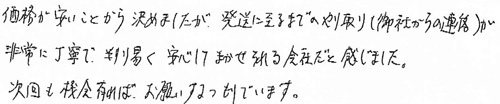 価格が安いことから決めましたが、発送に至るまでのやり取り(御社からの連絡)が
非常に丁寧で、判り易く安心してまかせられる会社だと感じました。
次回も機会有れば、お願いするつもりでいます。